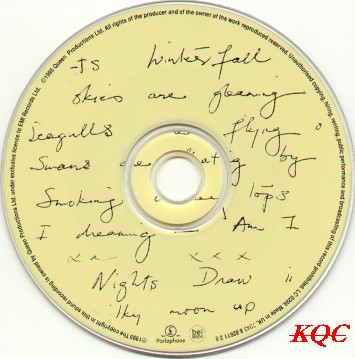 ©1995 Queen Productions Ltd. All rights of the producer and of the owner of the work reproduced reserved. Unauthorised copying, hiring, renting, public performance and broadcasting of this record prohibited. LC 0299. Made in UK.
℗1995 The copyright in this sound recording is owned by Queen Productions Ltd. under exclusive licence to EMI Records Ltd.
-ts winter-fall
skies are gleaming
Seagulls are flying o
Swans are ating by
Smoking tops
I dreaming — Am I
x x x x x
Nights Draw i
ilky moon up
Parlophone
KQC